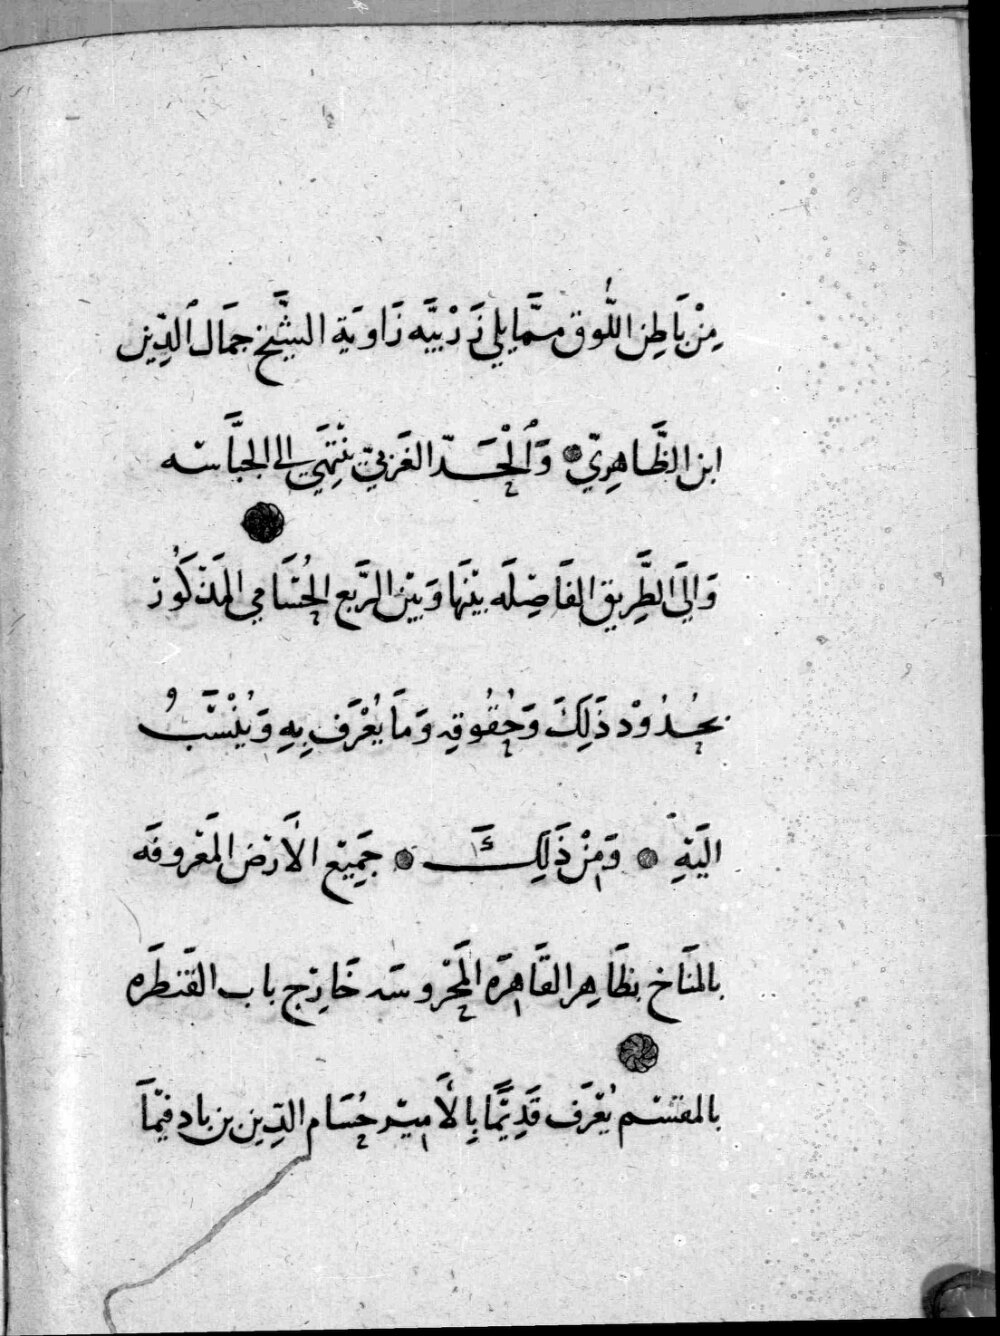 مِنْ بَاطِنِ اللُّوق مِمَّا يلي زَرْبيَّه زَاويَة الشَّيْخ جمَال الدِّين
ابن الظَّاهِرِيّ وَالْحَدّ الغَربيّ يَنْتَهَي الى الجبَّاسَه
وَالَى الطَّرِيق الفَاصِلَه بيْنَهَا وَبَيْن الرَّبع الحُسَامي المَذكُور
بحُدُوْد ذَلِكَ وَحُقُوقِه وَمَا يُعْرَف بِهِ وَيُنْسَبُ
الَيْهِ وَمِنْ ذَلِكَ جَمِيْع الأَرْض المَعْروفَه
بالمنَاخ بظَاهِر القَاهِرَه المَحْروسَه خَارِج باب القَنطَره
بالمقسْم يُعْرَف قَدِيْمًا بِالأَمِيْر حُسَام الدِّين بن باد فيْمَا